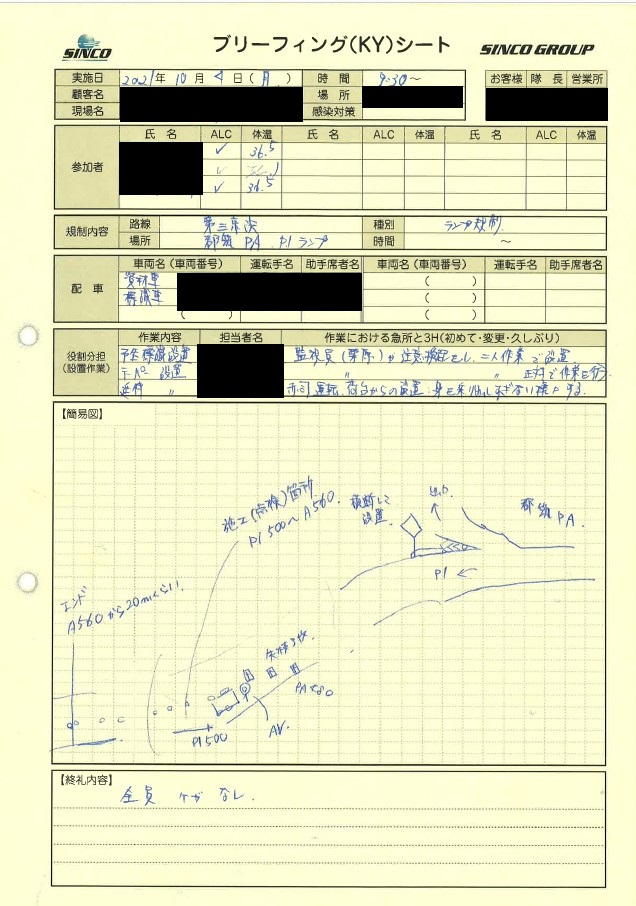 SINCO
ブリーフィング(KY)シート
SINCO GROUP
実施日 2021年 10月 4日(月) 時間 9:30~
お客様 隊長 営業所
顧客名 場所
現場名 感染対策
参加者
氏名 ALC 体温 氏名 ALC 体温 氏名 ALC 体温
✓ 36.5
✓
✓ 36.5
規制内容
路線 第三京浜 種別 ランプ規制
場所 都筑PA P1ランプ 時間 ~
配車
車両名(車両番号) 運転手名 助手席者名 車両名(車両番号) 運転手名 助手席者名
資材車 ( )
標識車 ( )
( )
役割分担(設置作業)
作業内容 担当者名 作業における急所と3H(初めて・変更・久しぶり)
予告標識設置 監視員 が注意 をし、二人作業で設置
テーパー設置 〃 〃 で作業を行う
〃 運転、荷台からの設置、身を乗り出しすぎない様にする
【簡易図】
施工(点検)箇所
P1 500~A560.
横断して
設置
都筑PA
P1 ←
エンド
A560から20mくらい
矢板3枚
P1500
【終礼内容】
全員 ケガ なし.